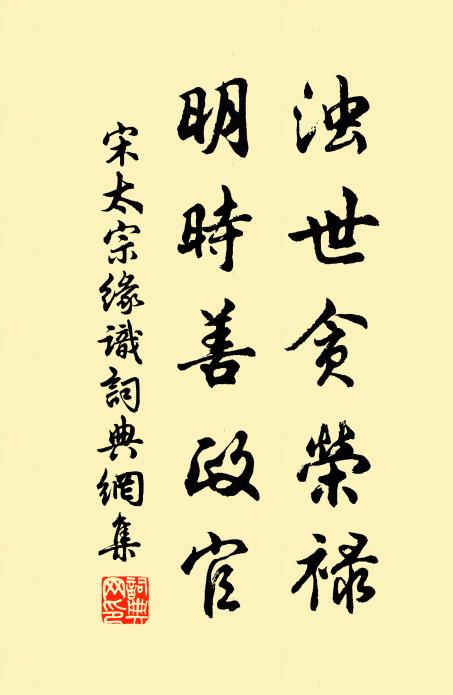 浊世贪荣禄
明時善政官
宋太宗缘識詞典網集
詞典网印